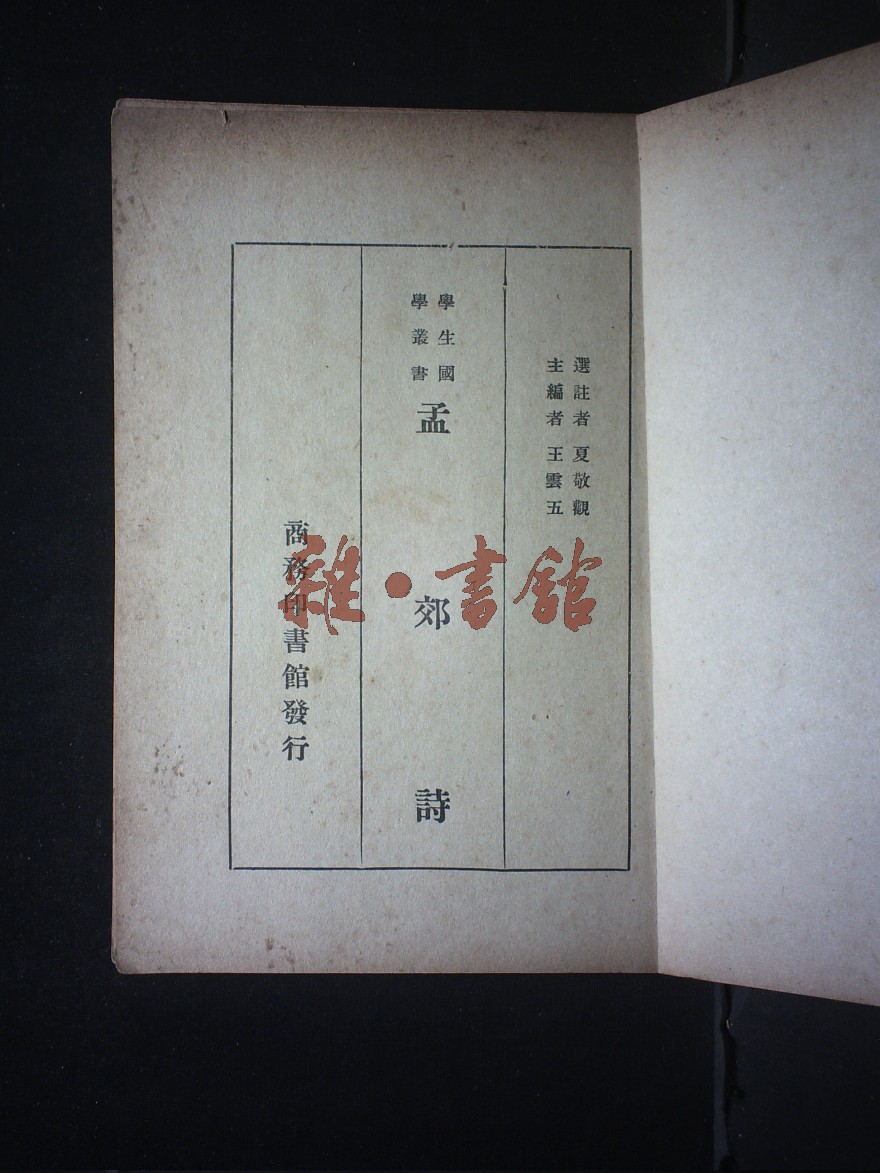 選註者 夏敬觀
主編者 王雲五
學生國
學叢書
孟郊詩
商務印書館發行
雜·書館